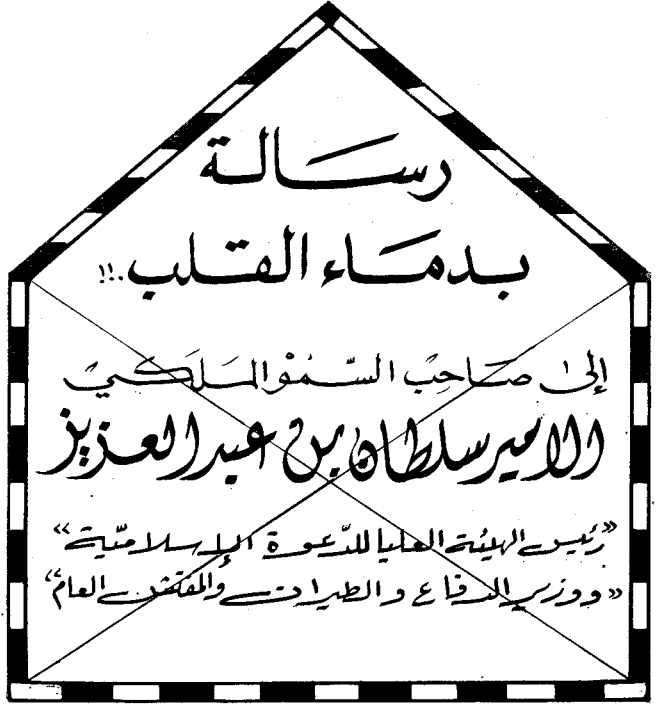 رسالة
بدماء القلب..!!
إلى صاحب السّمُوّ المَلَكي
الامير سلطان بن عبد العزيز
«رئيس الهيئة العليا للدّعوة الإسلاميّة»
«ووزير الدفاع والطيران والمفتش العام»